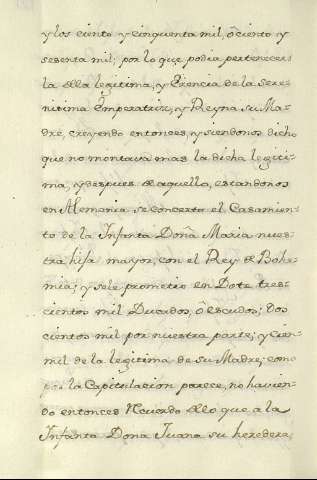 y los ciento y cinquenta mil, ô ciento y
sesenta mil; por lo que podia pertenecer
la ella legitima, y Erencia de la Sere-
nitima Emperatriz, y Reyna su Ma-
dre, creyendo entonces, y siendonos dicho
que no montava mas la dicha legiti-
ma, y despues de aquello, estandonos
en Alemania se concerto el Casamien-
to de la Infanta Doña Maria nues-
tra hija mayor, con el Rey de Bohe-
mia; y se le prometio en Dote tres-
cientos mil Ducados, ô Escudos; Dos
cientos mil por nuestra parte; y Cien
mil de la legitima de su Madre, como
por la Capitulacion parece, no havien-
do entonces Acuerdo dello que a la
Infanta Dona Juana su heredera,